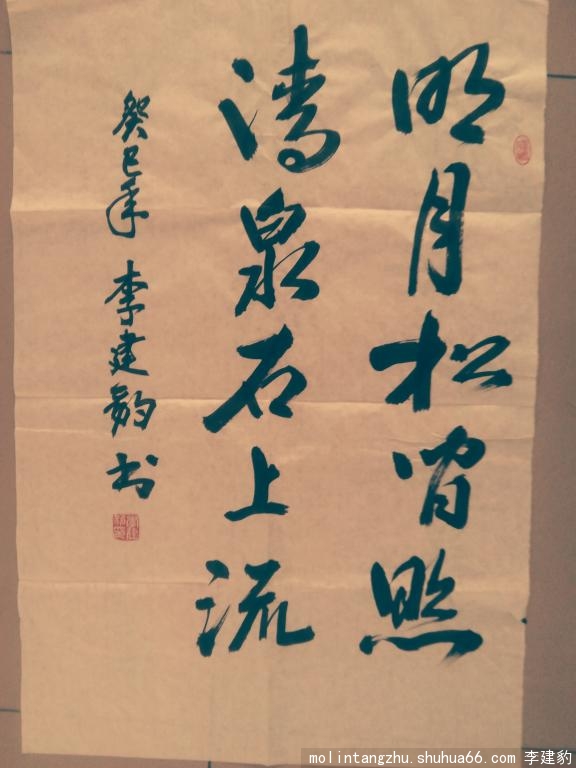 明月松间照
清泉石上流
癸巳年 李建豹书
molintangzhu.shuhua66.com 李建豹